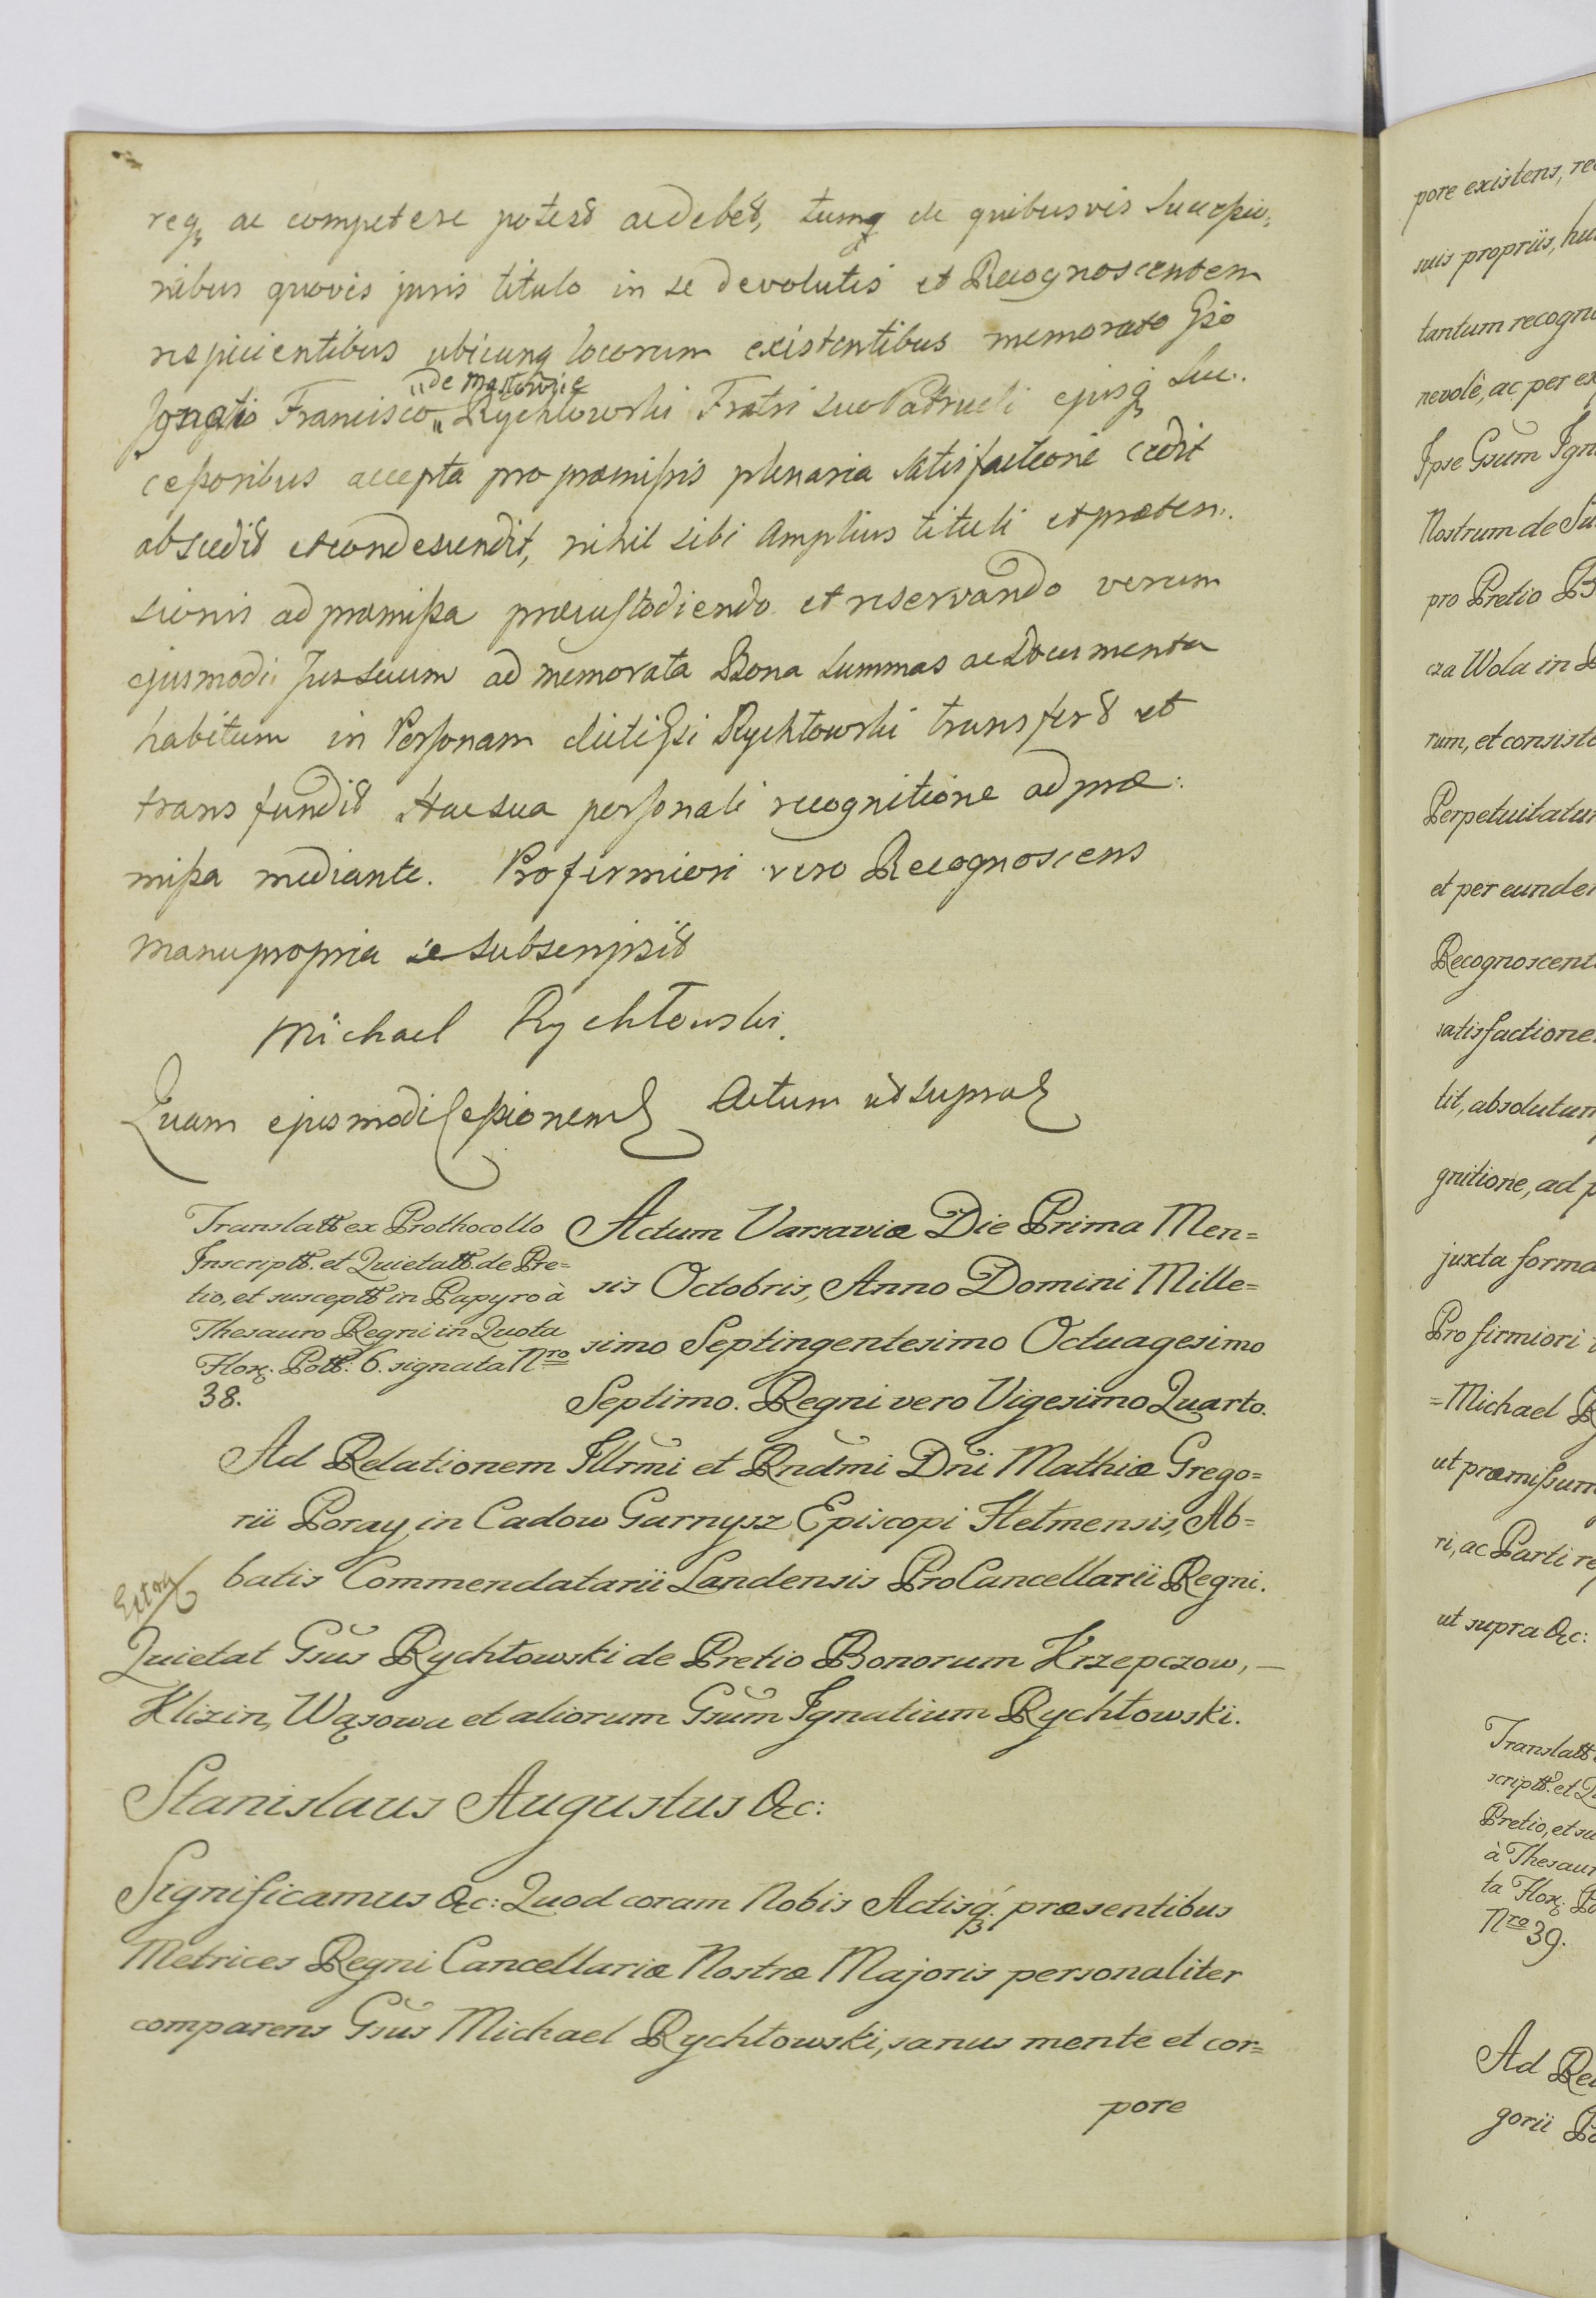 req, ac competere poterit ac debet, tumq, de quibusvis Successio-
nibus quovis juris titulo in se devolutis et Recognoscentem
respicientibus ubicunq locorum existentibus memorato Gso
Ignatio Francisco Rychłowski Fratri suo Patrueli ejusq, Suc-
cessoribus accepta pro præmissis plenaria satisfactione cedit
abscedit et condescendit, nihil sibi amplius tituli et præten-
sionis ad præmissa præcustodiendo et reservando verum
ejusmodi Jus suum ad memorata Bona summas ac Documenta
habitum in Personam dicti Gsi Rychłowski transfert et
transfundit Hac sua personali recognitione ad præ:
missa mediante. Pro firmiori vero Recognoscens
manu propria se subscripsit
Michael Rychłowski.
Quam ejusmodi Cessionem Actum ut supra
Translatt ex Prothocollo
Inscriptt. et Quietatt. de Pre=
tio, et susceptt in Papyro à
Thesauro Regni in Quota
Flor. Poll: 6. signata Nro
38.
Actum Varsaviæ Die Prima Men=
sis Octobris, Anno Domini Mille=
simo Septingentesimo Octuagesimo
Septimo. Regni vero Vigesimo Quarto.
Ad Relationem Illrmi et Rndmi Dni Mathiæ Grego=
rii Poray in Cadow Garnysz Episcopi Helmensis, Ab=
batis Commendatarii Landensis ProCancellarii Regni.
Quietat Gsus Rychłowski de Pretio Bonorum Krzepczow, —
Klizin, Wąsowa et aliorum Gsum Ignatium Rychłowski.
Stanislaus Augustus &c:
Significamus &c: Quod coram Nobis Actisq. præsentibus
Metrices Regni Cancellariæ Nostræ Majoris personaliter
comparens Gsus Michael Rychłowski, sanus mente et cor=
pore
pore existens,
suis propriis,
tantum
nevolè, ac per
Ipse Gsum
Nostrum de
pro Pretio
cza Wola in
rum, et
et per
lit,
gnitione, ad
juxta
Pro firmiori
=Michael
ut
ri, ac Parti
ut supra &c:
Translatt
scriptt. et
Pretio, et
à
ta Flor.
Nro 39.
Ad
gorii